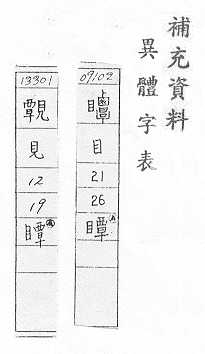 補充資料
異體字表
09102
目
21
26
瞫
13301
見
12
19
瞫